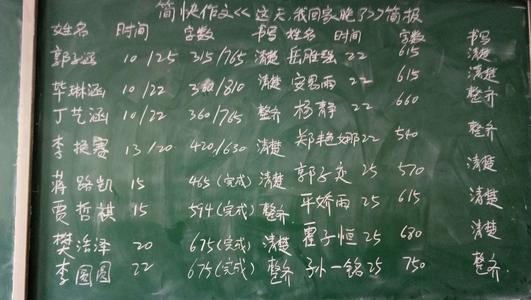 简快作文《这天,我回家晚了》简报
姓名 时间 字数 书写 姓名 时间 字数 书写
郭子涵 10/25 315/765 清楚 岳胜强 22 615 清楚
毕琳涵 10/22 /810 清楚 安思雨 22 615 清楚
丁艺涵 10/22 360/765 整齐 杨静 22 660 整齐
李 赛 13/20 420/630 清楚 郑艳娜 22 540 整齐
蒋路凯 15 465(完成) 清楚 郭子 25 570 清楚
贾哲祺 15 594(完成) 整齐 平娇雨 25 615 清楚
樊浩泽 20 675(完成) 清楚 霍子恒 25 630 清楚
李圆圆 22 675(完成) 整齐 孙一铭 25 750 整齐